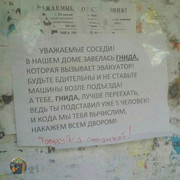 УВАЖАЕМЫЕ СОСЕДИ!
В НАШЕМ ДОМЕ ЗАВЕЛАСЬ ГНИДА,
КОТОРАЯ ВЫЗЫВАЕТ ЭВАКУАТОР!
БУДЬТЕ БДИТЕЛЬНЫ И НЕ СТАВЬТЕ
МАШИНЫ ВОЗЛЕ ПОДЪЕЗДА!
А ТЕБЕ, ГНИДА, ЛУЧШЕ ПЕРЕЕХАТЬ,
ВЕДЬ ТЫ ПОДСТАВИЛ УЖЕ 5 ЧЕЛОВЕК!
И КОДА МЫ ТЕБЯ ВЫЧИСЛИМ,
НАКАЖЕМ ВСЕМ ДВОРОМ!